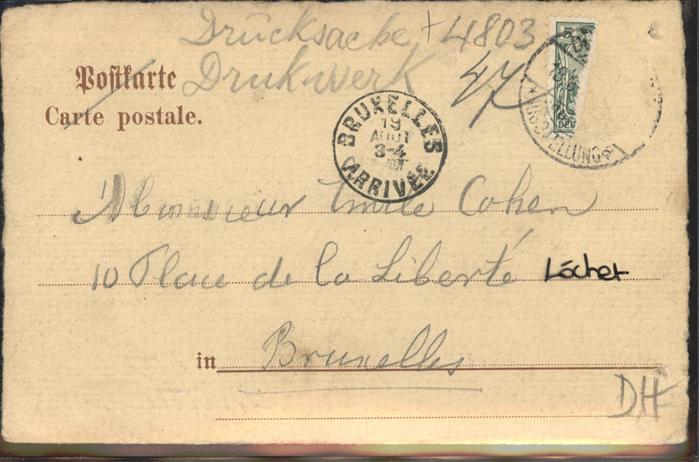 Drucksache + 4803
Postkarte Drukwerk 47
Carte postale.
BRUXELLES
19
AOUT
3-4
ARRIVÉE
5
AUSSTELLUNG
Monsieur Emile Cohen
10 Place de la Liberté Löcher
in Bruxelles
DH